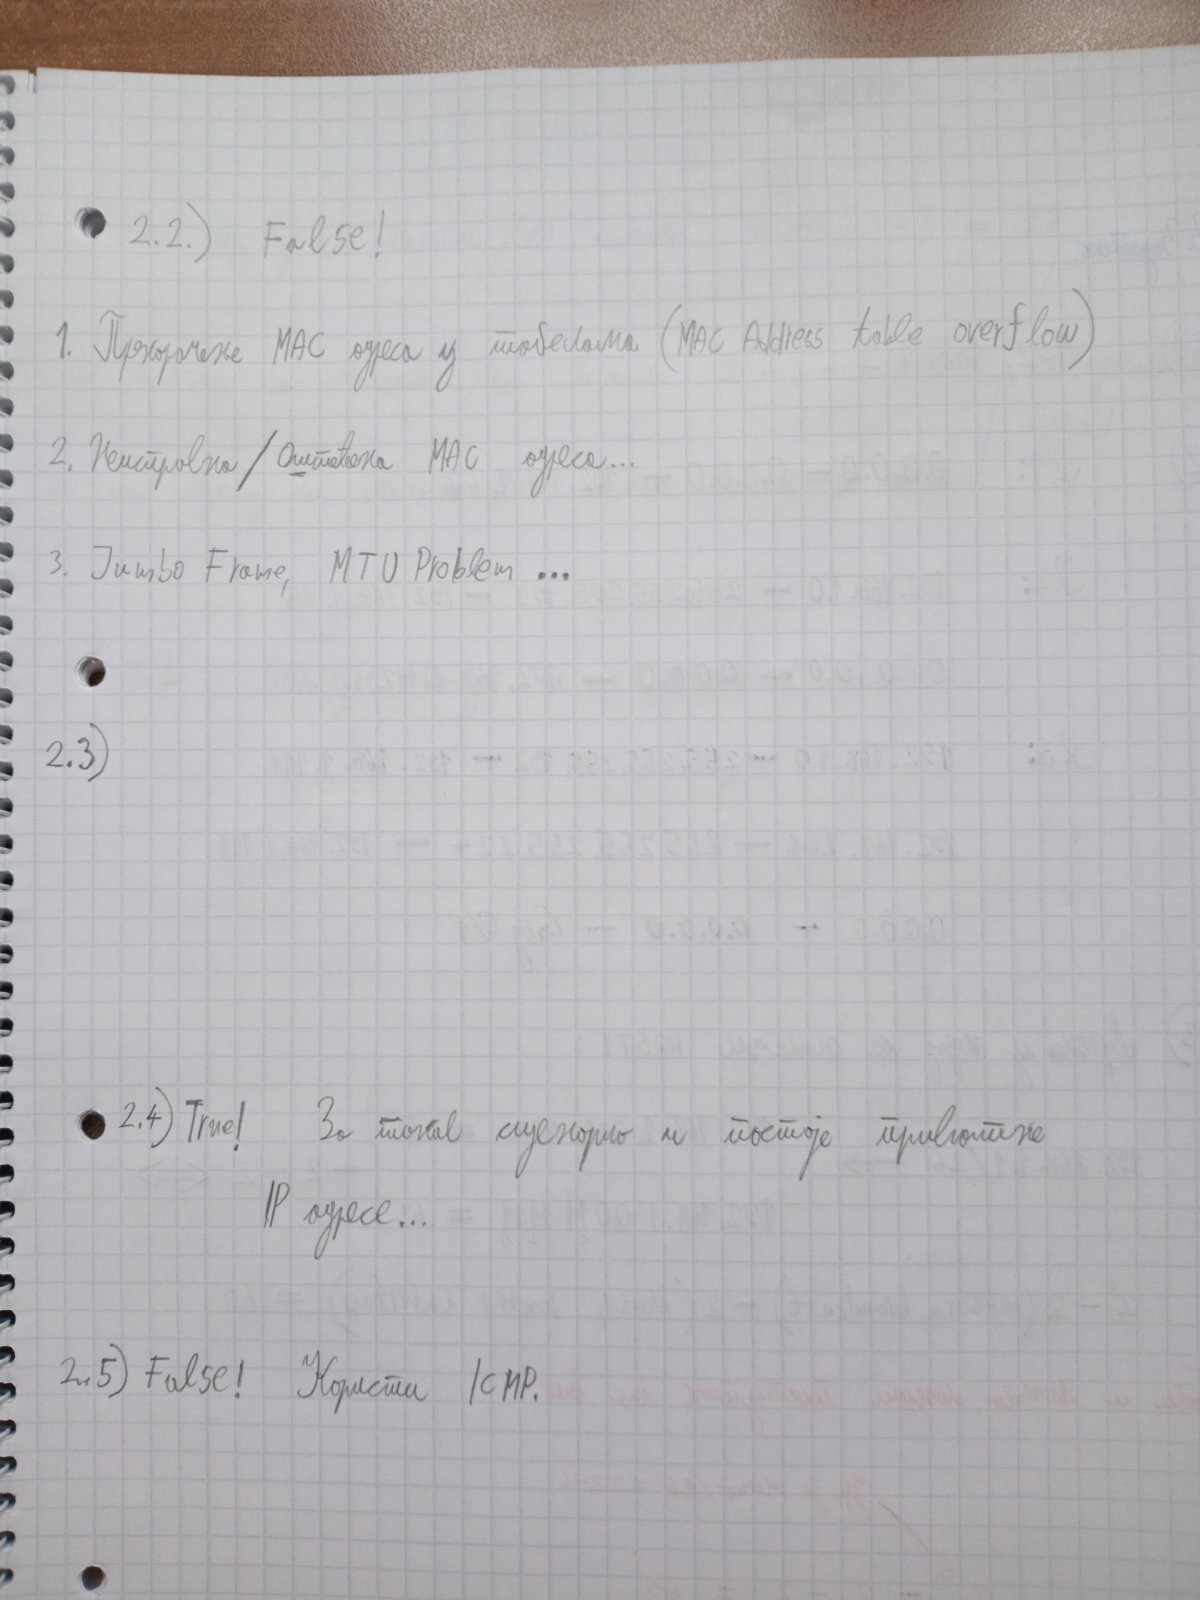 2.2.) False!
1. Прекорачење MAC адреса у табелама (MAC Address table overflow)
2. Неисправна/Оштећена MAC адреса...
3. Jumbo Frame, MTU Problem ...
2.3)
2.4) True! За такав сценарио и постоје приватне
IP адресе...
2.5) False! Користи ICMP.